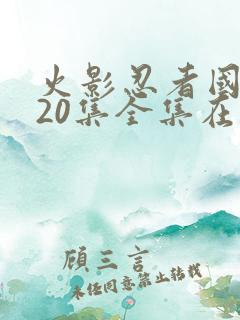 火影忍者國
20集全集在
顧三言
未任同意禁止转载